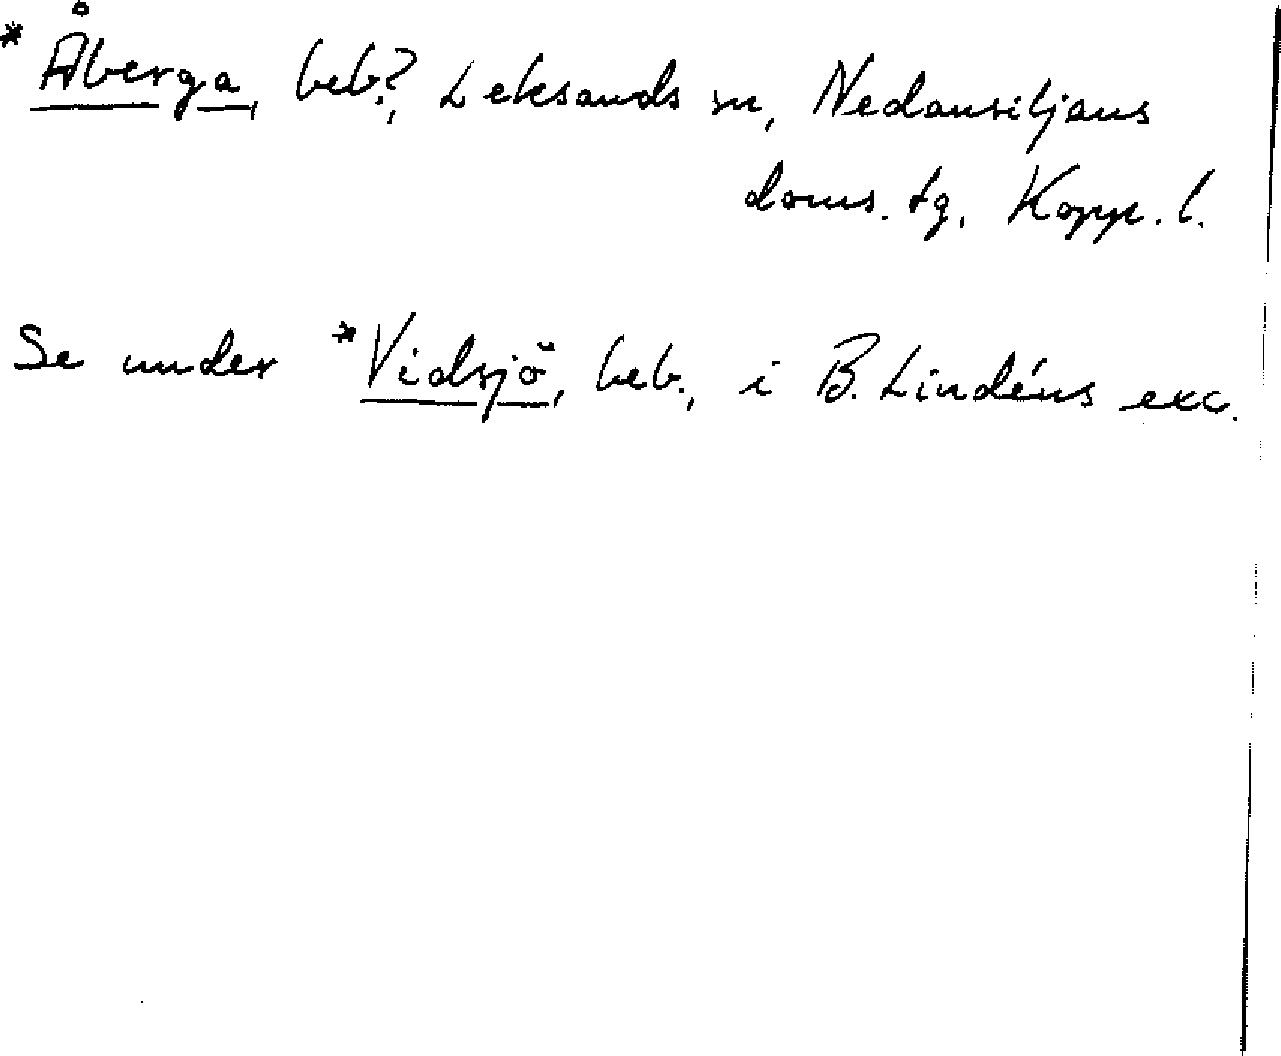 *Åberga, beb.?, Leksands sn, Nedansiljans
doms. tg, Kopp. l.
Se under *Vidsjö, beb., i B. Lindéns exc.